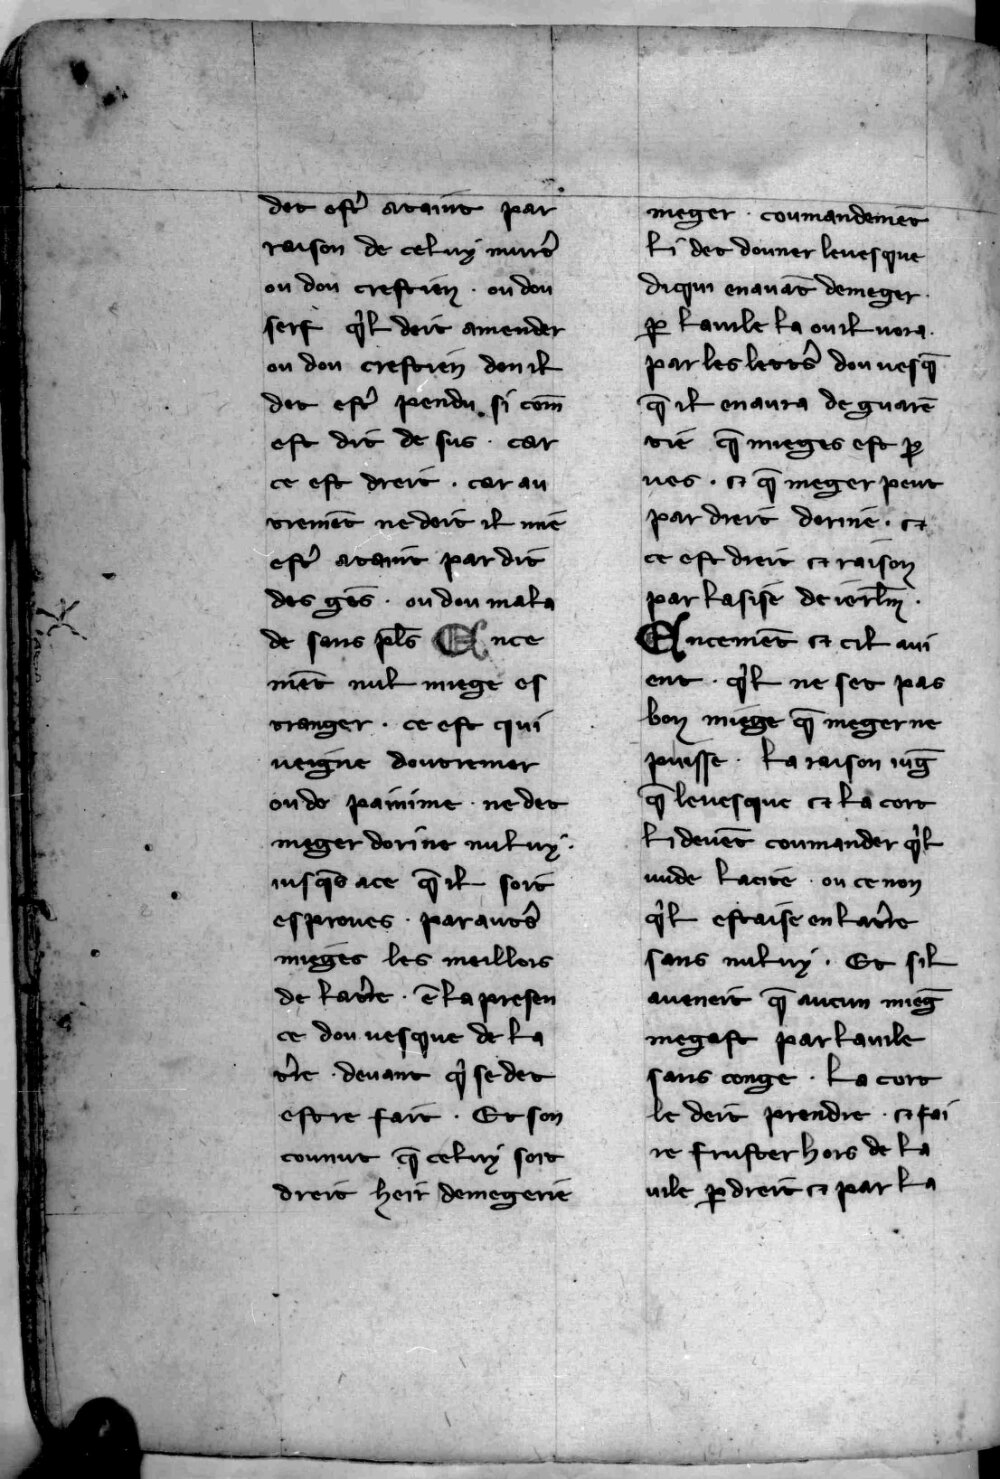 det estr̉ ataint par
raison de celuy murtr̉
ou dou crestien · ou dou
serf qͥl doit amender
ou dou crestien don il
det estr̉ pendu · si com̄
est dit de sus · car
ce est dreit · car au
tremēt ne doit il mie
estr̉ ataint par dit
des gēs · ou dou mala
de sans pl̄s Ance
mēt nul miege es
tranger · ce est qui
veigne doutremer
ou de painime · ne det
meger dorine nuluy ·
iusq̄s a ce q̄ il soit
esproues · par autr̉s
mieges les meillors
de la tr̉re · ē la presen
ce dou vesque de la
tr̉re · devant qͥ se det
estre fait · Et son
counut q̄ celuy soit
dreit heir de megerie
meger · coumandemēt
li det douner levesque
diqui en avāt de meger ·
ꝑ la vile la ou il vora ·
par les lettr̉s dou vesq̄
q̄ il en aura de guarē
tie q̄ mieges est ꝑ
ves · ⁊ q̄ meger peut
par dreit dorine · ⁊
ce est dreit ⁊ raison
par lasise de ierl̄m ·
Ancemēt ⁊ cil avi
ent · qͥl ne set pas
bon miege q̄ meger ne
puisse · la raison iuḡ
q̄ levesque ⁊ la cort
li devēt coumander qͥl
vude la cite · ou ce non
qͥl estaise en la tr̉re
sans nuluy · Et sil
aveneit q̄ aucun mieḡ
megast par la vile
sans conge · la cort
le deit prendre · ⁊ fai
re fruster hors de la
vile ꝑ dreit ⁊ par la